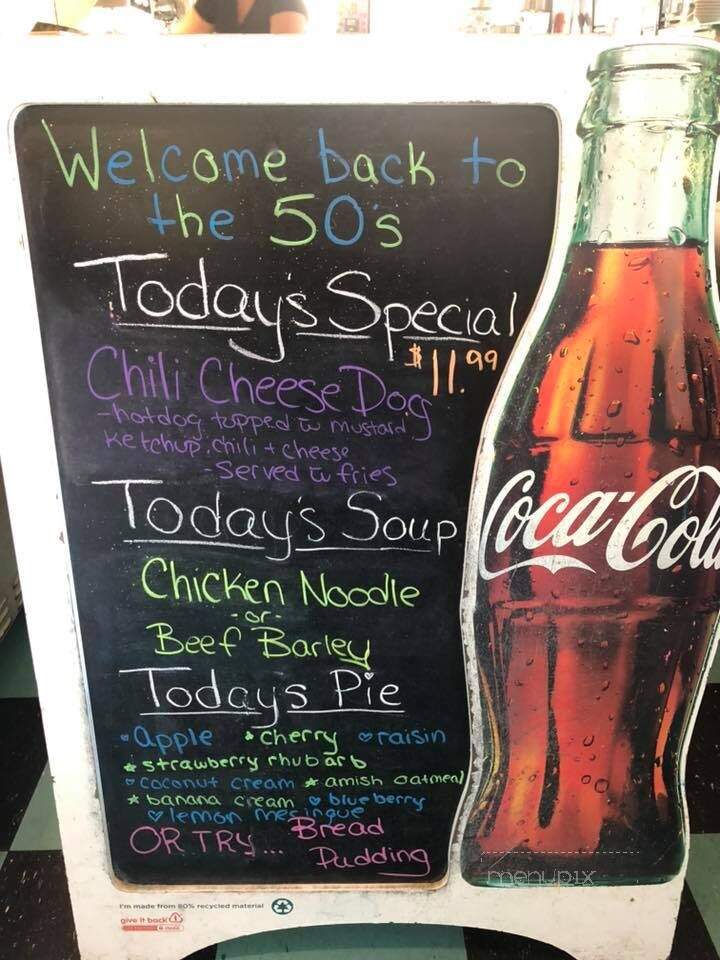 Welcome back to
the 50's
Today's Special
$11.99
Chili Cheese Dog
-hotdog topped w mustard
ketchup, chili + cheese
-Served w fries
Today's Soup
Chicken Noodle
-or-
Beef Barley
Today's Pie
• apple • cherry ♡ raisin
★ strawberry rhubarb
♡ coconut cream ★ amish oatmeal
★ banana cream ♡ blueberry
♡ lemon meringue
OR TRY... Bread
Pudding
Coca-Cola
I'm made from 80% recycled material
give it back
menupix